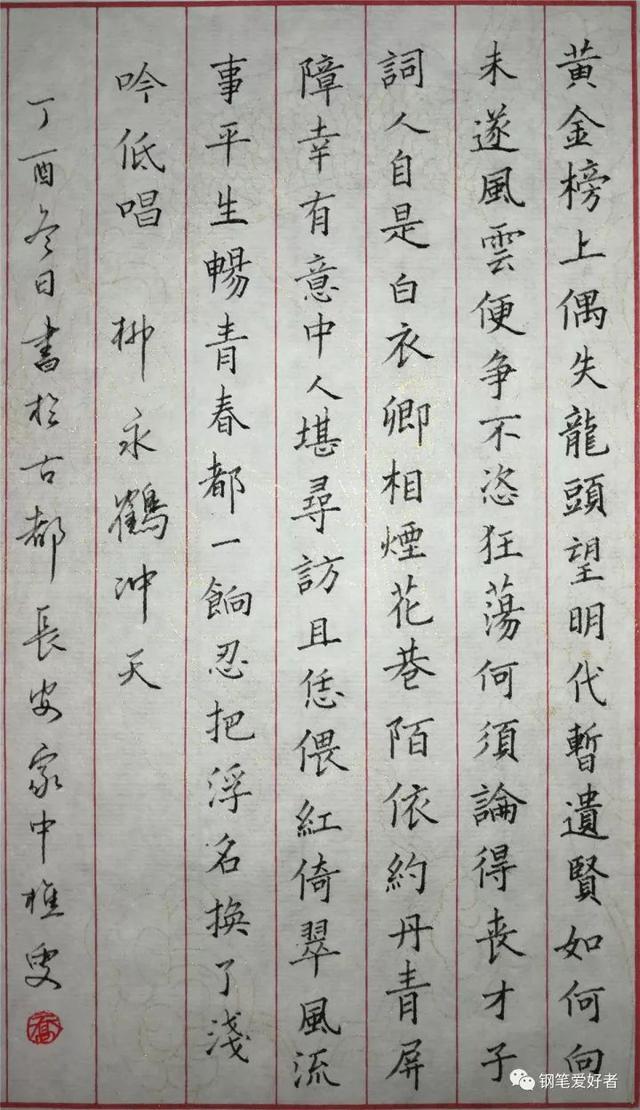 黃金榜上偶失龍頭望明代暫遺賢如何向
未遂風雲便争不恣狂蕩何須論得丧才子
詞人自是白衣卿相煙花巷陌依約丹青屏
障幸有意中人堪尋訪且恁偎紅倚翠風流
事平生暢青春都一餉忍把浮名換了淺
吟低唱 柳永鶴冲天
丁酉冬日書於古都長安家中樵叟
钢笔爱好者